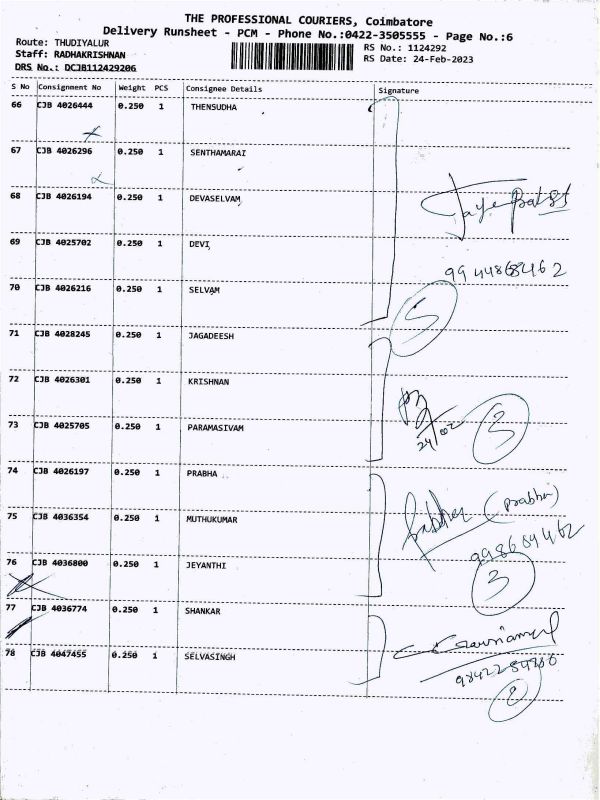 THE PROFESSIONAL COURIERS, Coimbatore
Delivery Runsheet - PCM - Phone No.:0422-3505555 - Page No.:6
Route: THUDIYALUR
RS No.: 1124292
Staff: RADHAKRISHNAN
RS Date: 24-Feb-2023
DRS No.: DCJB112429206
S No Consignment No Weight PCS Consignee Details Signature
66 CJB 4026444 0.250 1 THENSUDHA
67 CJB 4026296 0.250 1 SENTHAMARAI
68 CJB 4026194 0.250 1 DEVASELVAM
69 CJB 4025702 0.250 1 DEVI
9944868462
70 CJB 4026216 0.250 1 SELVAM
5
71 CJB 4028245 0.250 1 JAGADEESH
72 CJB 4026301 0.250 1 KRISHNAN
73 CJB 4025705 0.250 1 PARAMASIVAM
24/02
3
74 CJB 4026197 0.250 1 PRABHA
(Prabha)
75 CJB 4036354 0.250 1 MUTHUKUMAR
76 CJB 4036800 0.250 1 JEYANTHI
3
77 CJB 4036774 0.250 1 SHANKAR
78 CJB 4047455 0.250 1 SELVASINGH
2